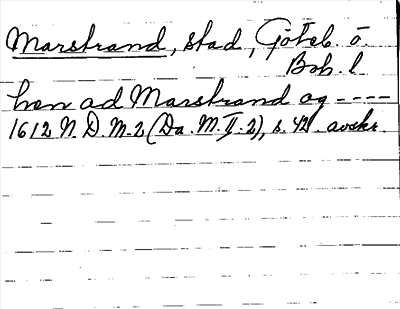 Marstrand, stad, Göteb. o.
Boh. l.
hen ad Marstrand og ----
1612 N. D. M-2 (Da. M. II. 2), s. 42. avskr.